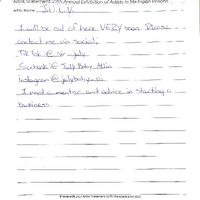 Artist Statement 27th Annual Exhibition of Artists in Michigan Prisons
Artist Name: JULY
I will be out of here VERY soon. Please
contact me via social:
Tik Tok @ sir_july
Facebook @ July Baby
Instagram @ july
I need a mentor and advice in starting a
business.